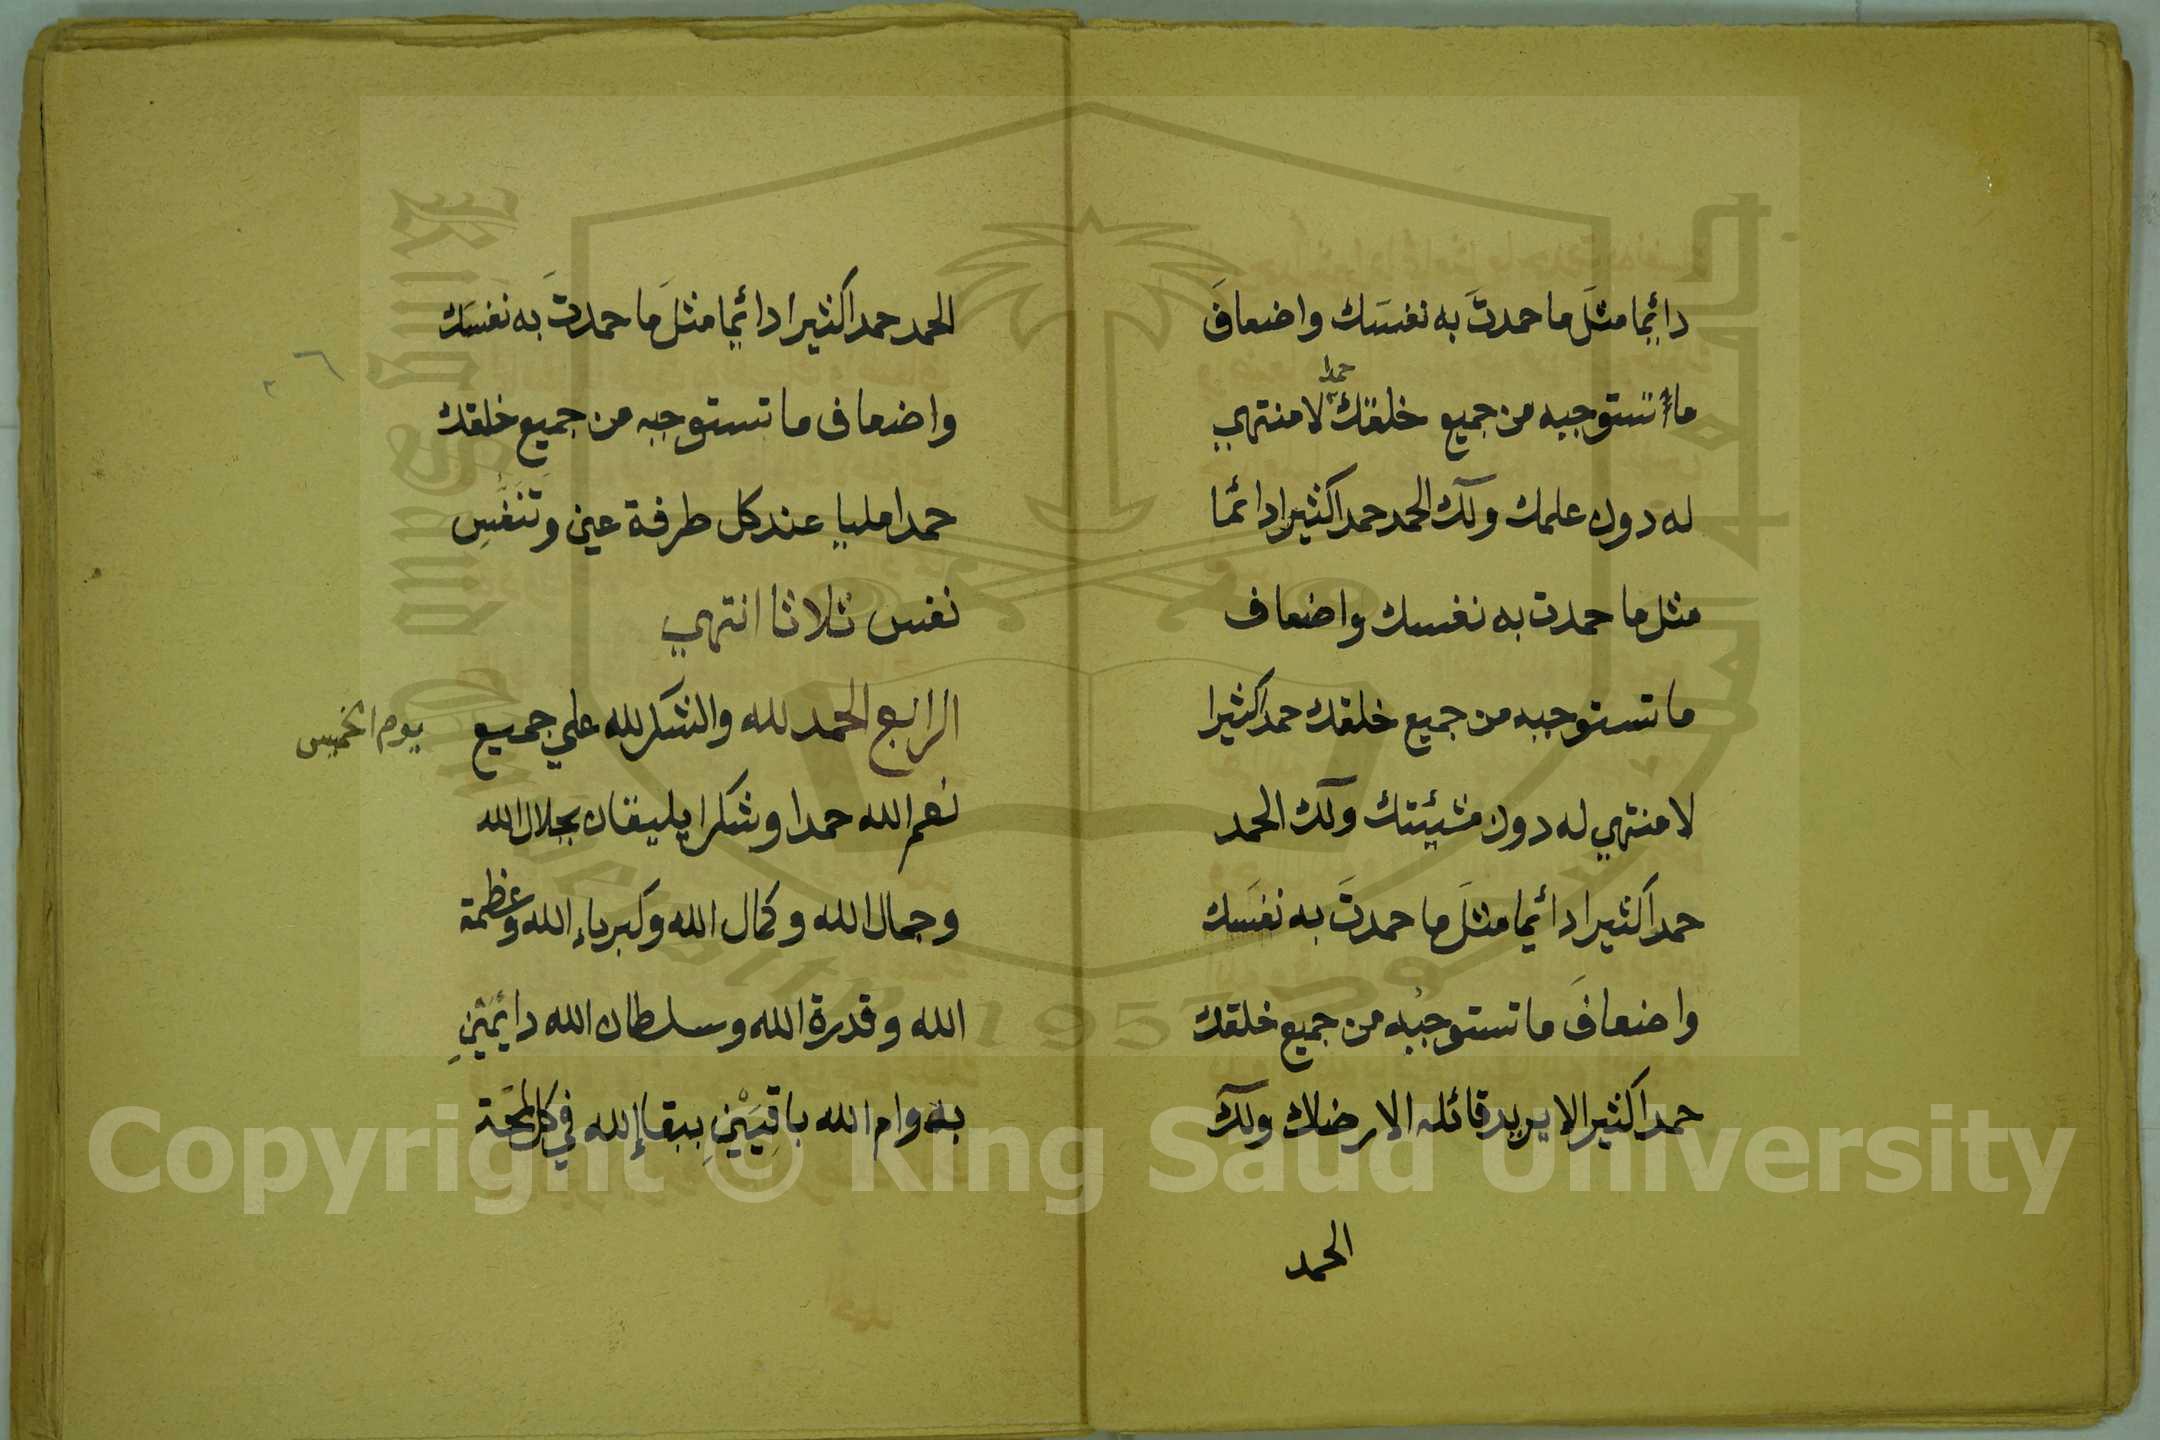 دائما مثلَ ما حمدتَ به نفسَك واضعافَ
حمدا
ما تستوجبه من جميع خلقك لا منتهي
له دون علمك ولك الحمد حمدا كثيرا دائما
مثل ما حمدت به نفسك واضعاف
ما تستوجبه من جميع خلقك حمدا كثيرا
لا منتهي له دون مشيئتك ولك الحمد
حمدا كثيرا دائما مثلَ ما حمدتَ به نفسَك
واضعافَ ما تستوجبُه من جميع خلقك
حمدا كثيرا لا يريد قائله الا رضاك ولك
الحمد
الحمد حمدا كثيرا دائما مثلَ ما حمدتَ به نفسَك
واضعاف ما تستوجبه من جميع خلقك
حمدا مليا عند كل طرفة عين وتنفَّسِ
نفس ثلاثا انتهي
الرابع الحمد لله والشكر لله علي جميع
يوم الخميس
نعم الله حمدا وشكرا يليقان بجلال الله
وجمال الله وكمال الله وكبرياء الله وعظمة
الله وقدرة الله وسلطان الله دائمَيْنِ
بدوام الله باقِيَيْنِ ببقاء الله في كل لمحَة
King Saud University
1957
Copyright © King Saud University